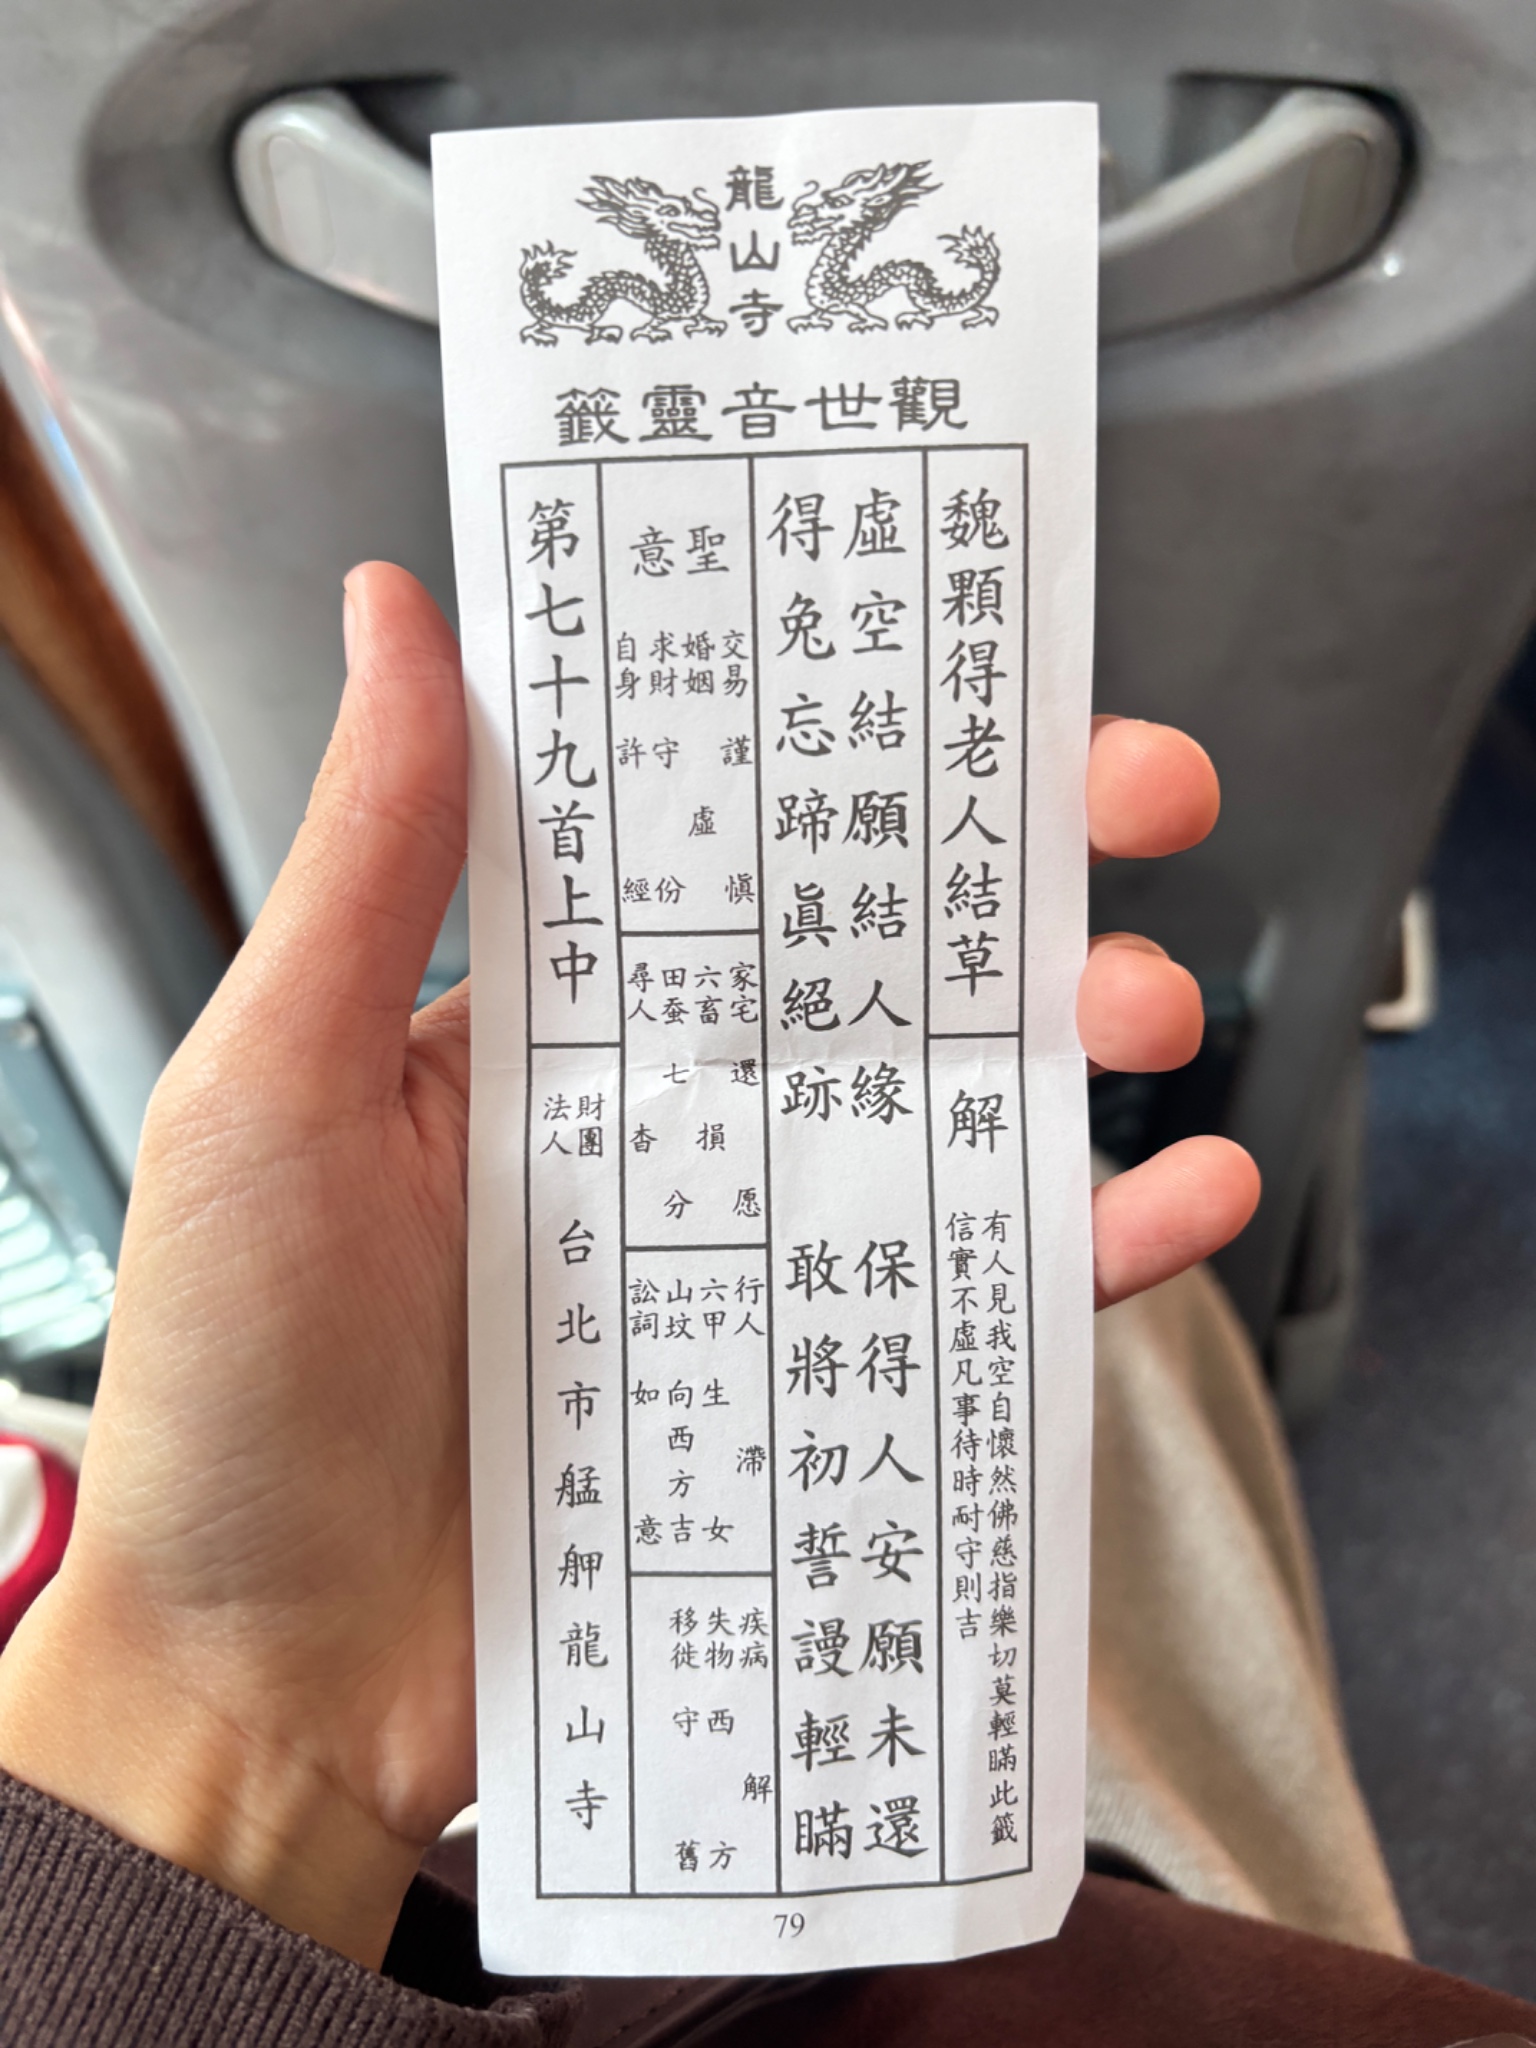 龍山寺
觀世音靈籤
魏顆得老人結草
解
有人見我空自懷然佛慈指樂切莫輕瞞此籤
信實不虛凡事待時耐守則吉
虛空結願結人緣 保得人安願未還
得兔忘蹄眞絕跡 敢將初誓謾輕瞞
聖意
交易 謹愼
婚姻 虛
求財 守份
自身 許經
家宅 還愿
六畜 損
田蚕 七分
尋人 杳
行人 滯
六甲 生女
山坟 向西方吉
訟詞 如意
疾病 解
失物 西方
移徙 守舊
第七十九首上中
財團法人 台北市艋舺龍山寺
79